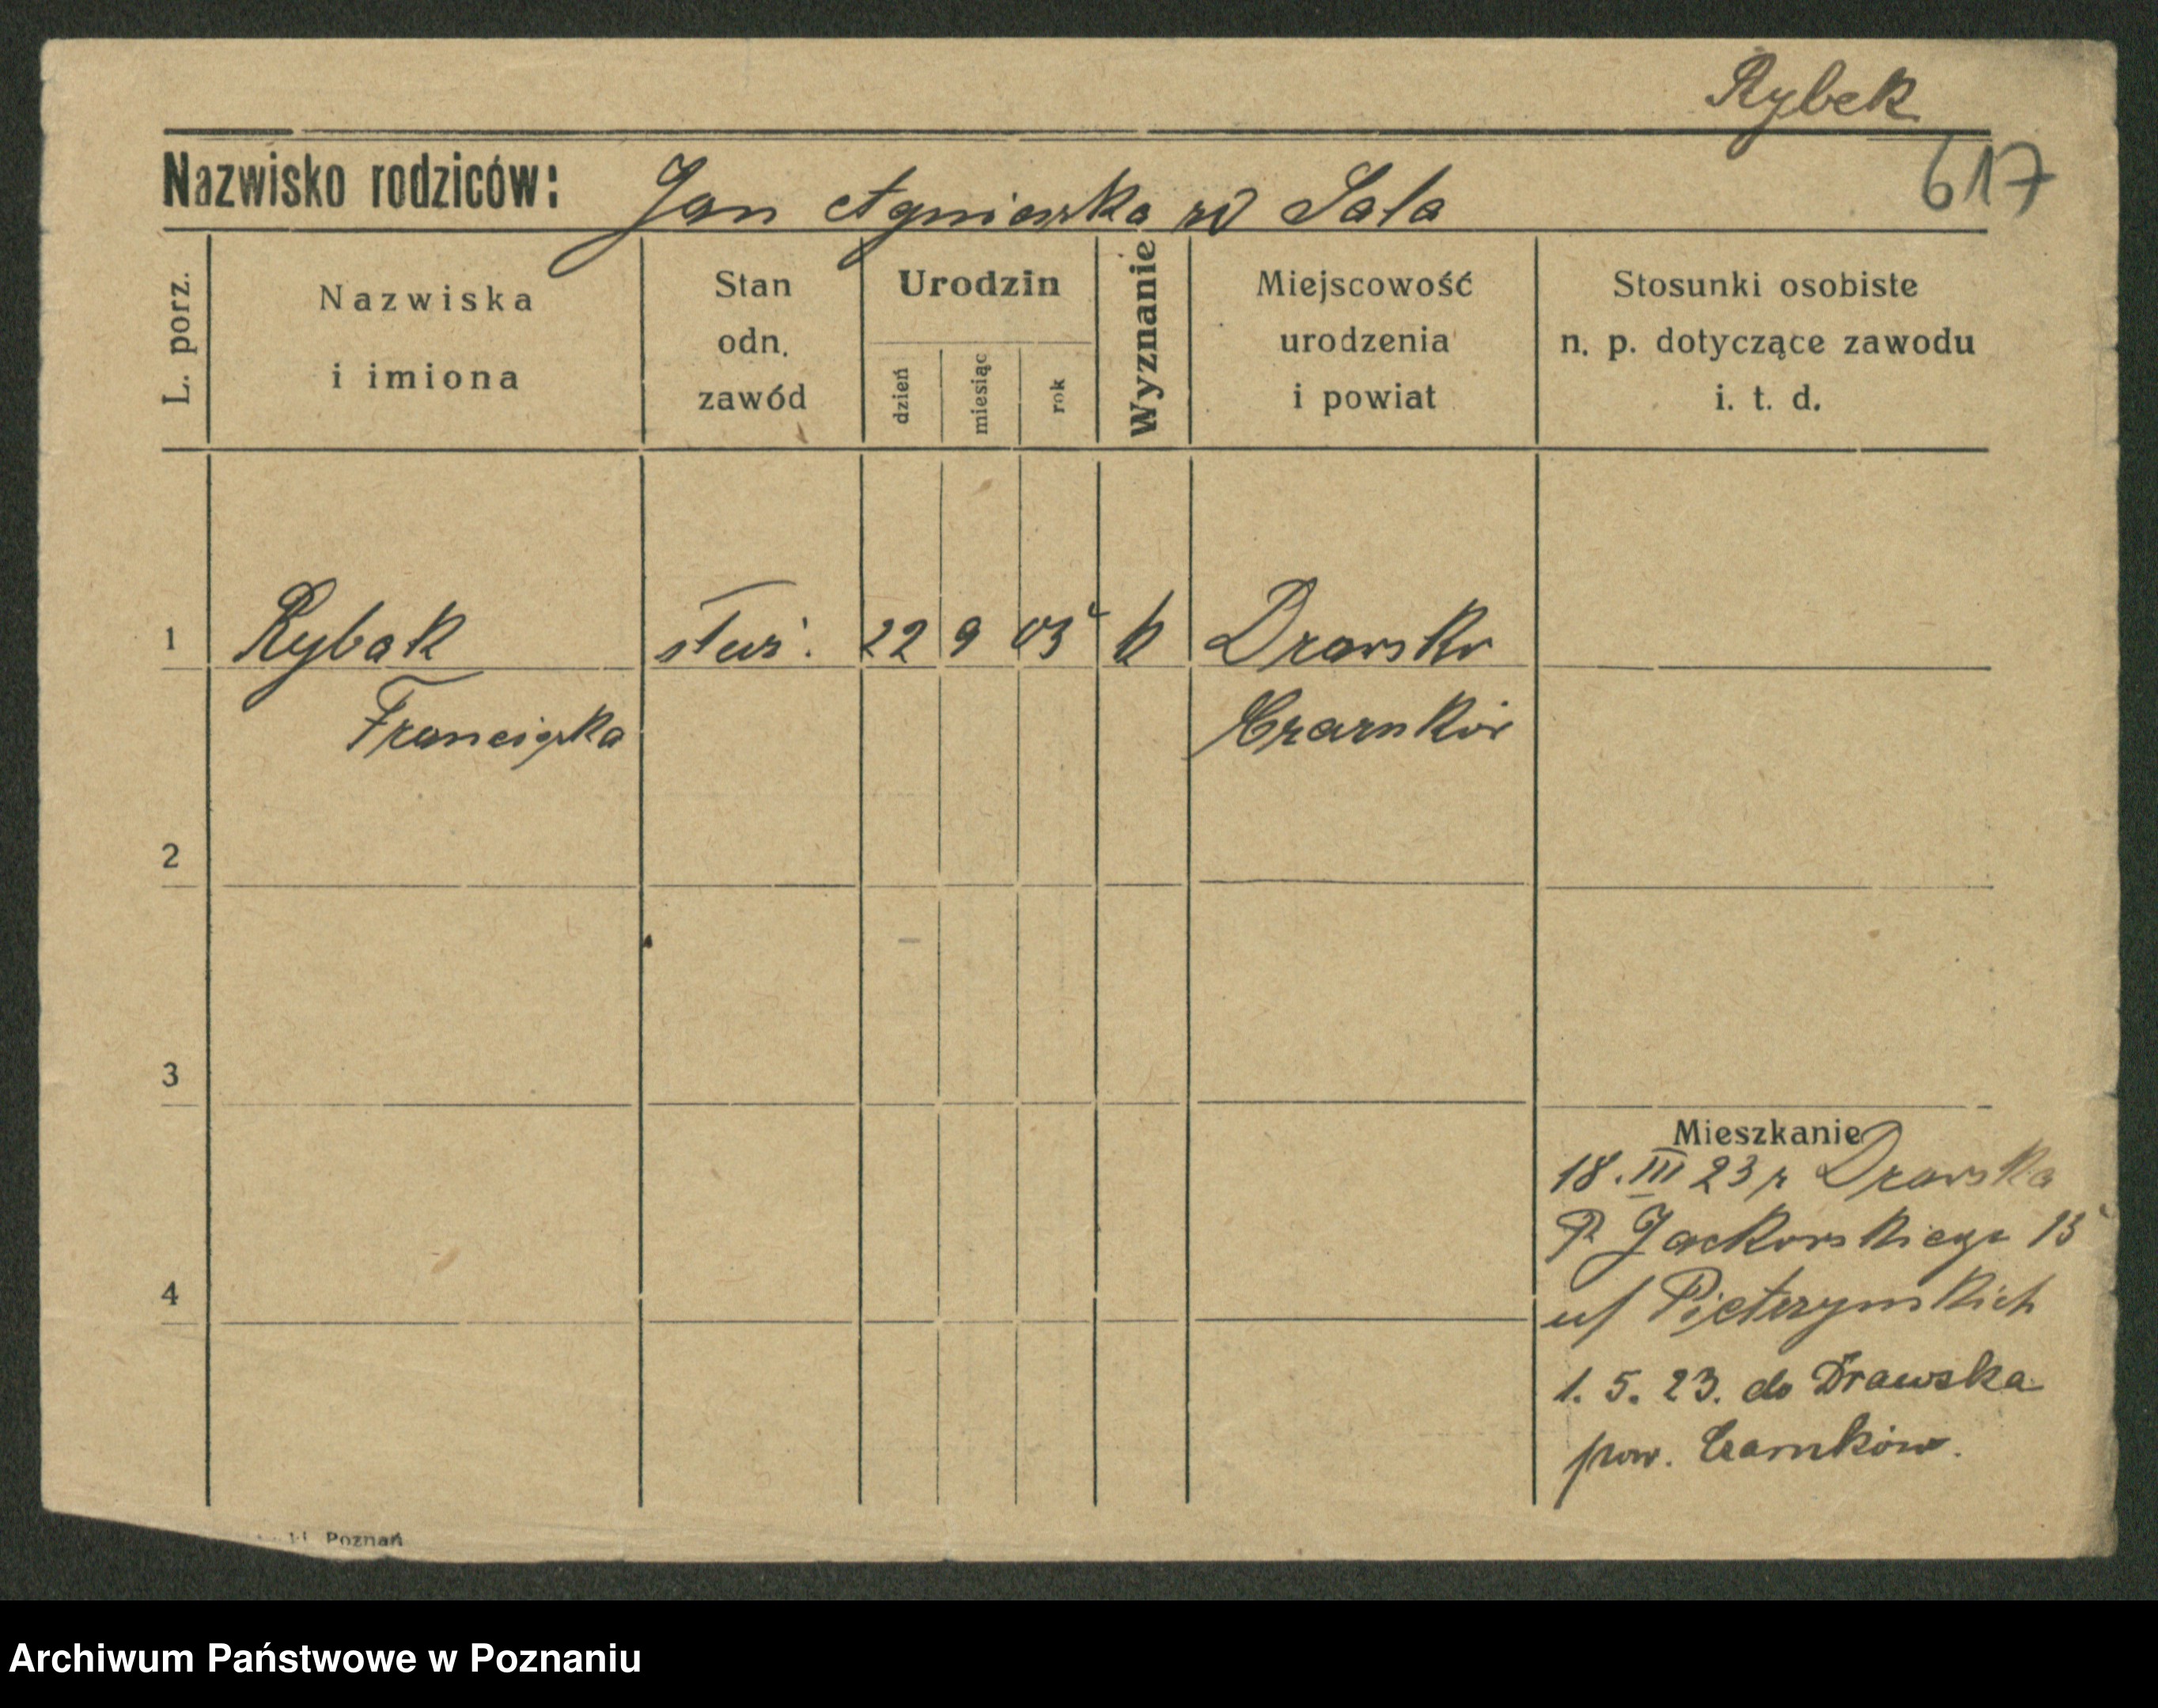 Rybek
617
Nazwisko rodziców: Jan Agnieszka rd Sala
L. porz.
Nazwiska
i imiona
Stan
odn.
zawód
Urodzin
dzień
miesiąc
rok
Wyznanie
Miejscowość
urodzenia
i powiat
Stosunki osobiste
n. p. dotyczące zawodu
i. t. d.
1 Rybak służ. 22 9 03 k Drawsko
Franciszka Czarnków
2
3
4
Mieszkanie
18. III 23 z Drawska
P. Jackowskiego 15
u/ Pietrzyńskich
1. 5. 23. do Drawska
pow. Czarnków.
Poznań
Archiwum Państwowe w Poznaniu